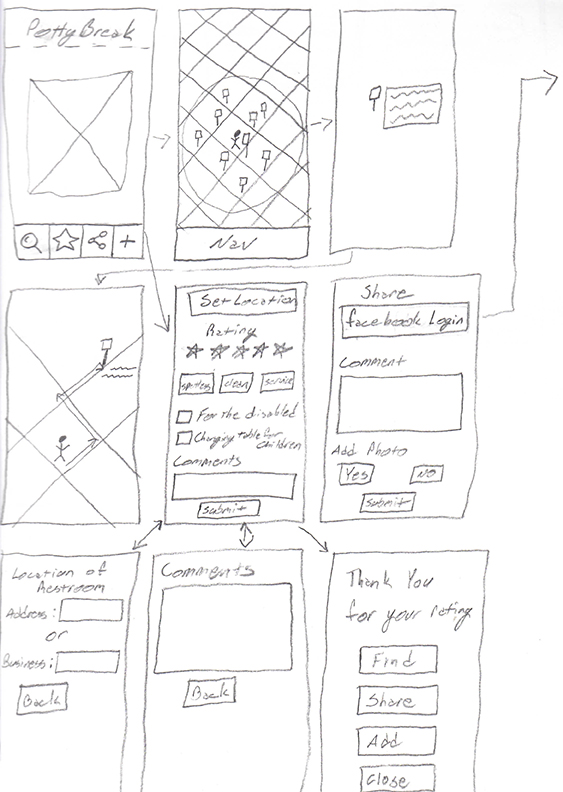 Potty Break
Nav
Set Location
Rating
spotless
clean
service
For the disabled
Changing table for
children
Comments
Submit
Share
facebook Login
Comment
Add Photo
Yes
No
Submit
Location of
Restroom
Address:
or
Business:
Back
Comments
Back
Thank You
for your rating
Find
Share
Add
Close